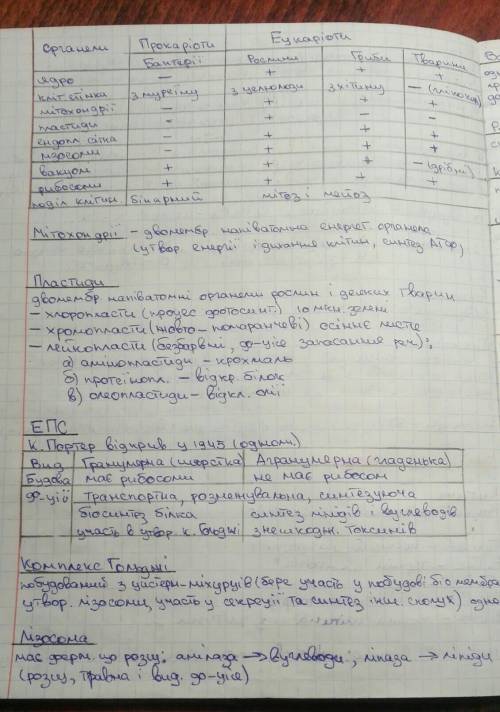 Органели Прокаріоти Еукаріоти
Бактерії Рослини Гриби Тварини
ядро – + + +
кліт стінка з муреїну з целюлози з хітину –
мітохондрії – + + +
пластиди – + – –
ендопл сітка – + + +
лізосоми – + + +
вакуолі + + + – (дрібні)
рибосоми + + + +
поділ клітин. бінарний мітоз і мейоз
Мітохондрії – двомембр. напіватомна енергет. органела
(утвор. енергії і дихання клітин, синтез АТФ)
Пластиди
двомембр напіватомні органели рослин і деяких тварин
– хлоропласти (процес фотосинт.) 10 мкм. зелені
– хромопласти (жовто – помаранчеві) осіннє листе
– лейкопласти (безбарвні, ф-ція запасання реч):
а) амілопластиди – крохмаль
б) протеїнопл. – відкр. білок
в) олеопластиди – відкл. олії
ЕПС
К. Портер відкрив у 1945 (одном.)
Вид Гранулярна (шорстка) Агранулярна (гладенька)
Будова має рибосоми не має рибосом
ф-ції Транспортна, розмежувальна, синтезуюча
біосинтез білка синтез ліпідів і вуглеводів
участь в утвор. к. Гольджі знешкодж. токсинів
Комплекс Гольджі
побудований з цистерн-міхурців (бере участь у побудові біо мембран
утвор. лізосоми, участь у секреції та синтез інш. сполук) одно
Лізосома
має ферм. що розщ: амілаза → вуглеводи; ліпаза → ліпіди
(розщ, травна і вид. ф-ція)